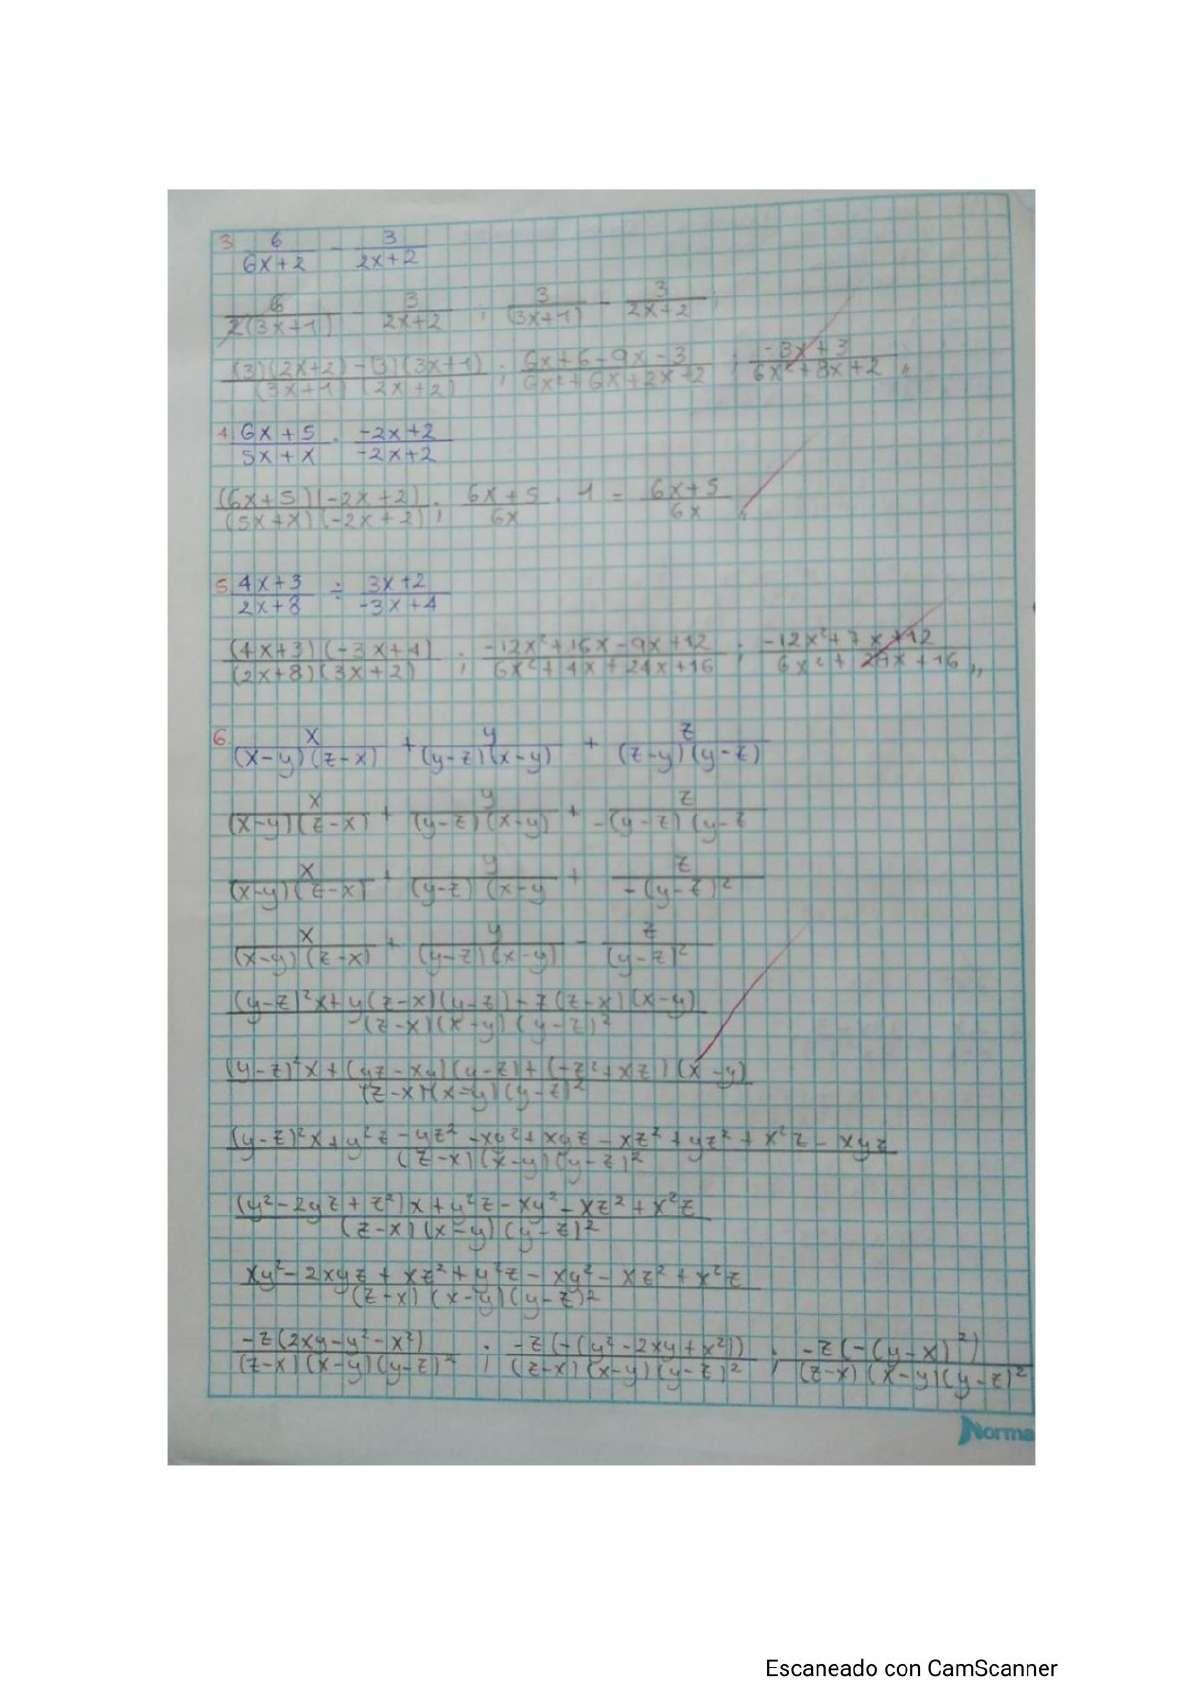 3. 6/(6x+2) - 3/(2x+2)
6/(2(3x+1)) - 3/(2x+2) ; 3/(3x+1) - 3/(2x+2) ;
((3)(2x+2) - (3)(3x+1))/((3x+1)(2x+2)) ; (6x+6-9x-3)/(6x²+6x+2x+2) ; (-3x+3)/(6x²+8x+2) ,,
4. (6x+5)/(5x+x) · (-2x+2)/(-2x+2)
((6x+5)(-2x+2))/((5x+x)(-2x+2)) ; (6x+5)/(6x) · 1 = (6x+5)/(6x) ,,
5. (4x+3)/(2x+8) ÷ (3x+2)/(-3x+4)
((4x+3)(-3x+4))/((2x+8)(3x+2)) ; (-12x²+16x-9x+12)/(6x²+4x+24x+16) ; (-12x²+7x+12)/(6x²+28x+16) ,,
6. x/((x-y)(z-x)) + y/((y-z)(x-y)) + z/((z-y)(y-z))
x/((x-y)(z-x)) + y/((y-z)(x-y)) + z/(-(y-z)(y-z
x/((x-y)(z-x)) + y/((y-z)(x-y + z/(-(y-z)²)
x/((x-y)(z-x)) + y/((y-z)(x-y)) - z/(y-z)²
((y-z)²x+y(z-x)(y-z)-z(z-x)(x-y))/((z-x)(x-y)(y-z)²)
((y-z)²x+(yz-xy)(y-z)+(-z²+xz)(x-y))/((z-x)(x-y)(y-z)²)
((y-z)²x+y²z-yz²-xy²+xyz-xz²+yz²+x²z-xyz)/((z-x)(x-y)(y-z)²)
((y²-2yz+z²)x+y²z-xy²-xz²+x²z)/((z-x)(x-y)(y-z)²)
(xy²-2xyz+xz²+y²z-xy²-xz²+x²z)/((z-x)(x-y)(y-z)²)
(-z(2xy-y²-x²))/((z-x)(x-y)(y-z)²) ; (-z(-(y²-2xy+x²)))/((z-x)(x-y)(y-z)²) ; (-z(-(y-x)²))/((z-x)(x-y)(y-z)²)
Norma
Escaneado con CamScanner